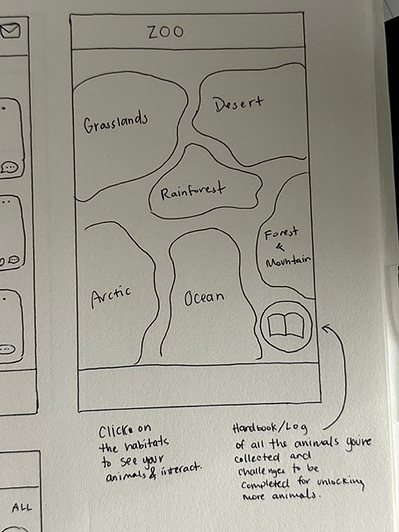 ZOO
Grasslands
Desert
Rainforest
Forest
&
Mountain
Arctic
Ocean
Click on
the habitats
to see your
animals & interact.
Handbook/Log
of all the animals you're
collected and
challenges to be
completed for unlocking
more animals.
ALL